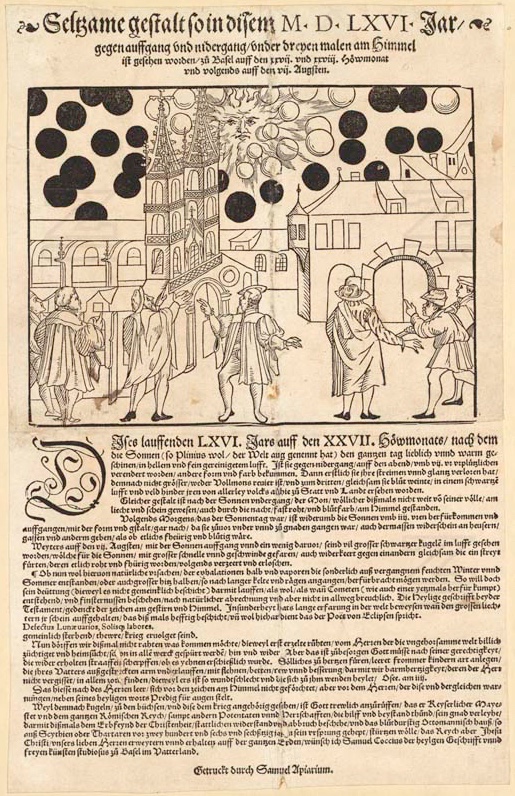 Seltzame gestalt so in disem M. D. LXVI. Jar/
gegen auffgang vnd nidergang/ vnder dreyen malen am Himmel
ist gesehen worden/ zů Basel auff den xxvij. vnd xxviij. Höwmonat
vnd volgends auff den vij. Augsten.
DIses lauffenden LXVI. Jars auff den XXVII. Höwmonats/ nach dem
die Sonnen (so Plinius wol/ der Welt aug genennt hat) den gantzen tag lieblich vnnd warm ge-
schinen/ in hellem vnd fein gereinigetem lufft. Ist sie gegen nidergang/ auff den abend/ vmb vij. vr
verendert worden/ andere form vnd farb bekummen. Dann erstlich sie ihre streimen vnnd glantz verloren hat/
demnach nicht grösser/ weder Vollmons gleichsam sie blůt weinte/ in einem schwartzē
lufft vnd vilb hinder jren von allerley volck allhie zů Statt vnd Land ersehen worden.
Gleicher gestalt ist nach der Sonnen vndergang/ der Mon/ völliche dißmals nicht weit vō seiner völle/ am
liecht vnd schein gewesen/ auch durch die nacht/ fast rodt/ vnd blůtfarb/ am Himmel gstanden.
Volgends Morgens/ das Sonnentag war/ ist widerumb die Sonnen vmb vr her fürkommen vnd
auffgangen/ mit der form vnd gstalt/ gar nach/ da sie zůuor vnder vnnd zů gnaden gangen war/ auch dermassen widerschein an heusern/
gassen vnd anderen geben/ als ob etlichs fheürig vnd blůtig wäre.
Weyters auff den vij. Augsten/ mit der Sonnen auffgang vnnd ein wenig daruor/ seind vil grosser schwartzer kugelē im lufft gesehen
worden/ wölche für die Sonnen/ mit grosser schnelle vnnd geschwinde gefaren/ auch widerkeert gegen einandern gleichsam die ein streyt
fürten/ deren etlich rodt vnd fhürig worden/ volgends verzeert vnd erloschen.
Ob nun wol hieruon natürliche vrsachen/ der exhalationen halb von daporen die sonderlich auß vergangnem feuchten Winter vnnd
Sommer entstanden/ oder auch grosser hitz halben/ so nach langer kelte vnd rägen angangen/ herfürbracht mögen werden. So will doch
sein deüttung (dieweyl es nicht gemeinlich beschicht) darmit lauffen/ als wol/ als wañ Cometen/ wie auch einer yetzmals herfür kumpt)
entstehend/ vnd finsternussen beschehen/ nach natürlicher abnemmung vnd aber nicht in allweg beweglich. Die Heylige geschrifft beyder
Testament/ gedenckt der zeichen am gestirn vnd Himmel. Insunderheyt hats lange erfarung in der welt bewesen wañ den grossen liech-
tern jr schein auffgehalten/ das dißmals hefftig beschicht/ vñ wol hiehar dient das der Poet von Eclipsen spricht.
Defectus Lunæ varios, Solisq; labores.
gemeinlich sterbend/ thewre/ krieg ervolget seind.
Nun dörffen wir dißmal nicht rathen was kommen möchte/ dieweyl erst erzelte růthen/ vom Herren der die vngehorsamme welt billich
züchtiget vnd heimsůcht/ ist/ vns in alle weeg gespürt werde/ hin vnd wider. Aber das ist zůbesorgen Gott müste nach seiner gerechtigkeyt/
die wider erholten straaff ye scherpffen/ ob es yehnen erschießlich wurde. Söllliches zů bergen füren/ leeret frommer kindern art anlegen/
die ihres Vatters außgestreckten arm vnderlauffen/ mit flehen/ betten/ vnd besserung darmit wir barmhertzigkeyt/ deren der Herr
nicht vergißt/ in allem vol/ finden/ dieweyl es ist so wundeschlecht vnd lieb sich zů jhm wenden heylet/ Osee. am iiij.
Das hiesse nach des Herren leer/ sich vor den zeichen am Himmel nicht geföchtet/ aber vor dem Herren/ der dise vnd dergleichen war-
nungen/ neben seines heyligen worts Predig für augen stelt.
Weyl demnach kuglen/ in den büchsen/ vnd dise dem krieg angehörig gesehen/ ist Gott trewlich anzurüffen/ das er Keyserlicher Maye-
stet vnd dem gantzen Römischen Reych/ sampt andern Potentaten vnnd Herrschafften/ die hilff vnd beystand thůnd/ sein gnad verleyhe/
darmit dißmals dem Erbfeynd der Christenheit/ stattlichen widerstand vnd abbruch beschehe/ vnd das blůtdurstig Ottomannisch hauß/ so
auß Scythien oder Thartaren vor zwey hundert vnd sechs vnd sechtzig jar/ sein vrsprung gehept/ stürtzen wölle/ das Reych aber Jhesu
Christi/ vnsers lieben Herren erweytern vnnd erhalten auff der gantzen Erden/ wünsch ich Samuel Coccius der heylgen Geschrifft vnnd
freyen künsten studiosus zů Basel im Vatterland.
Getruckt durch Samuel Apiarium.